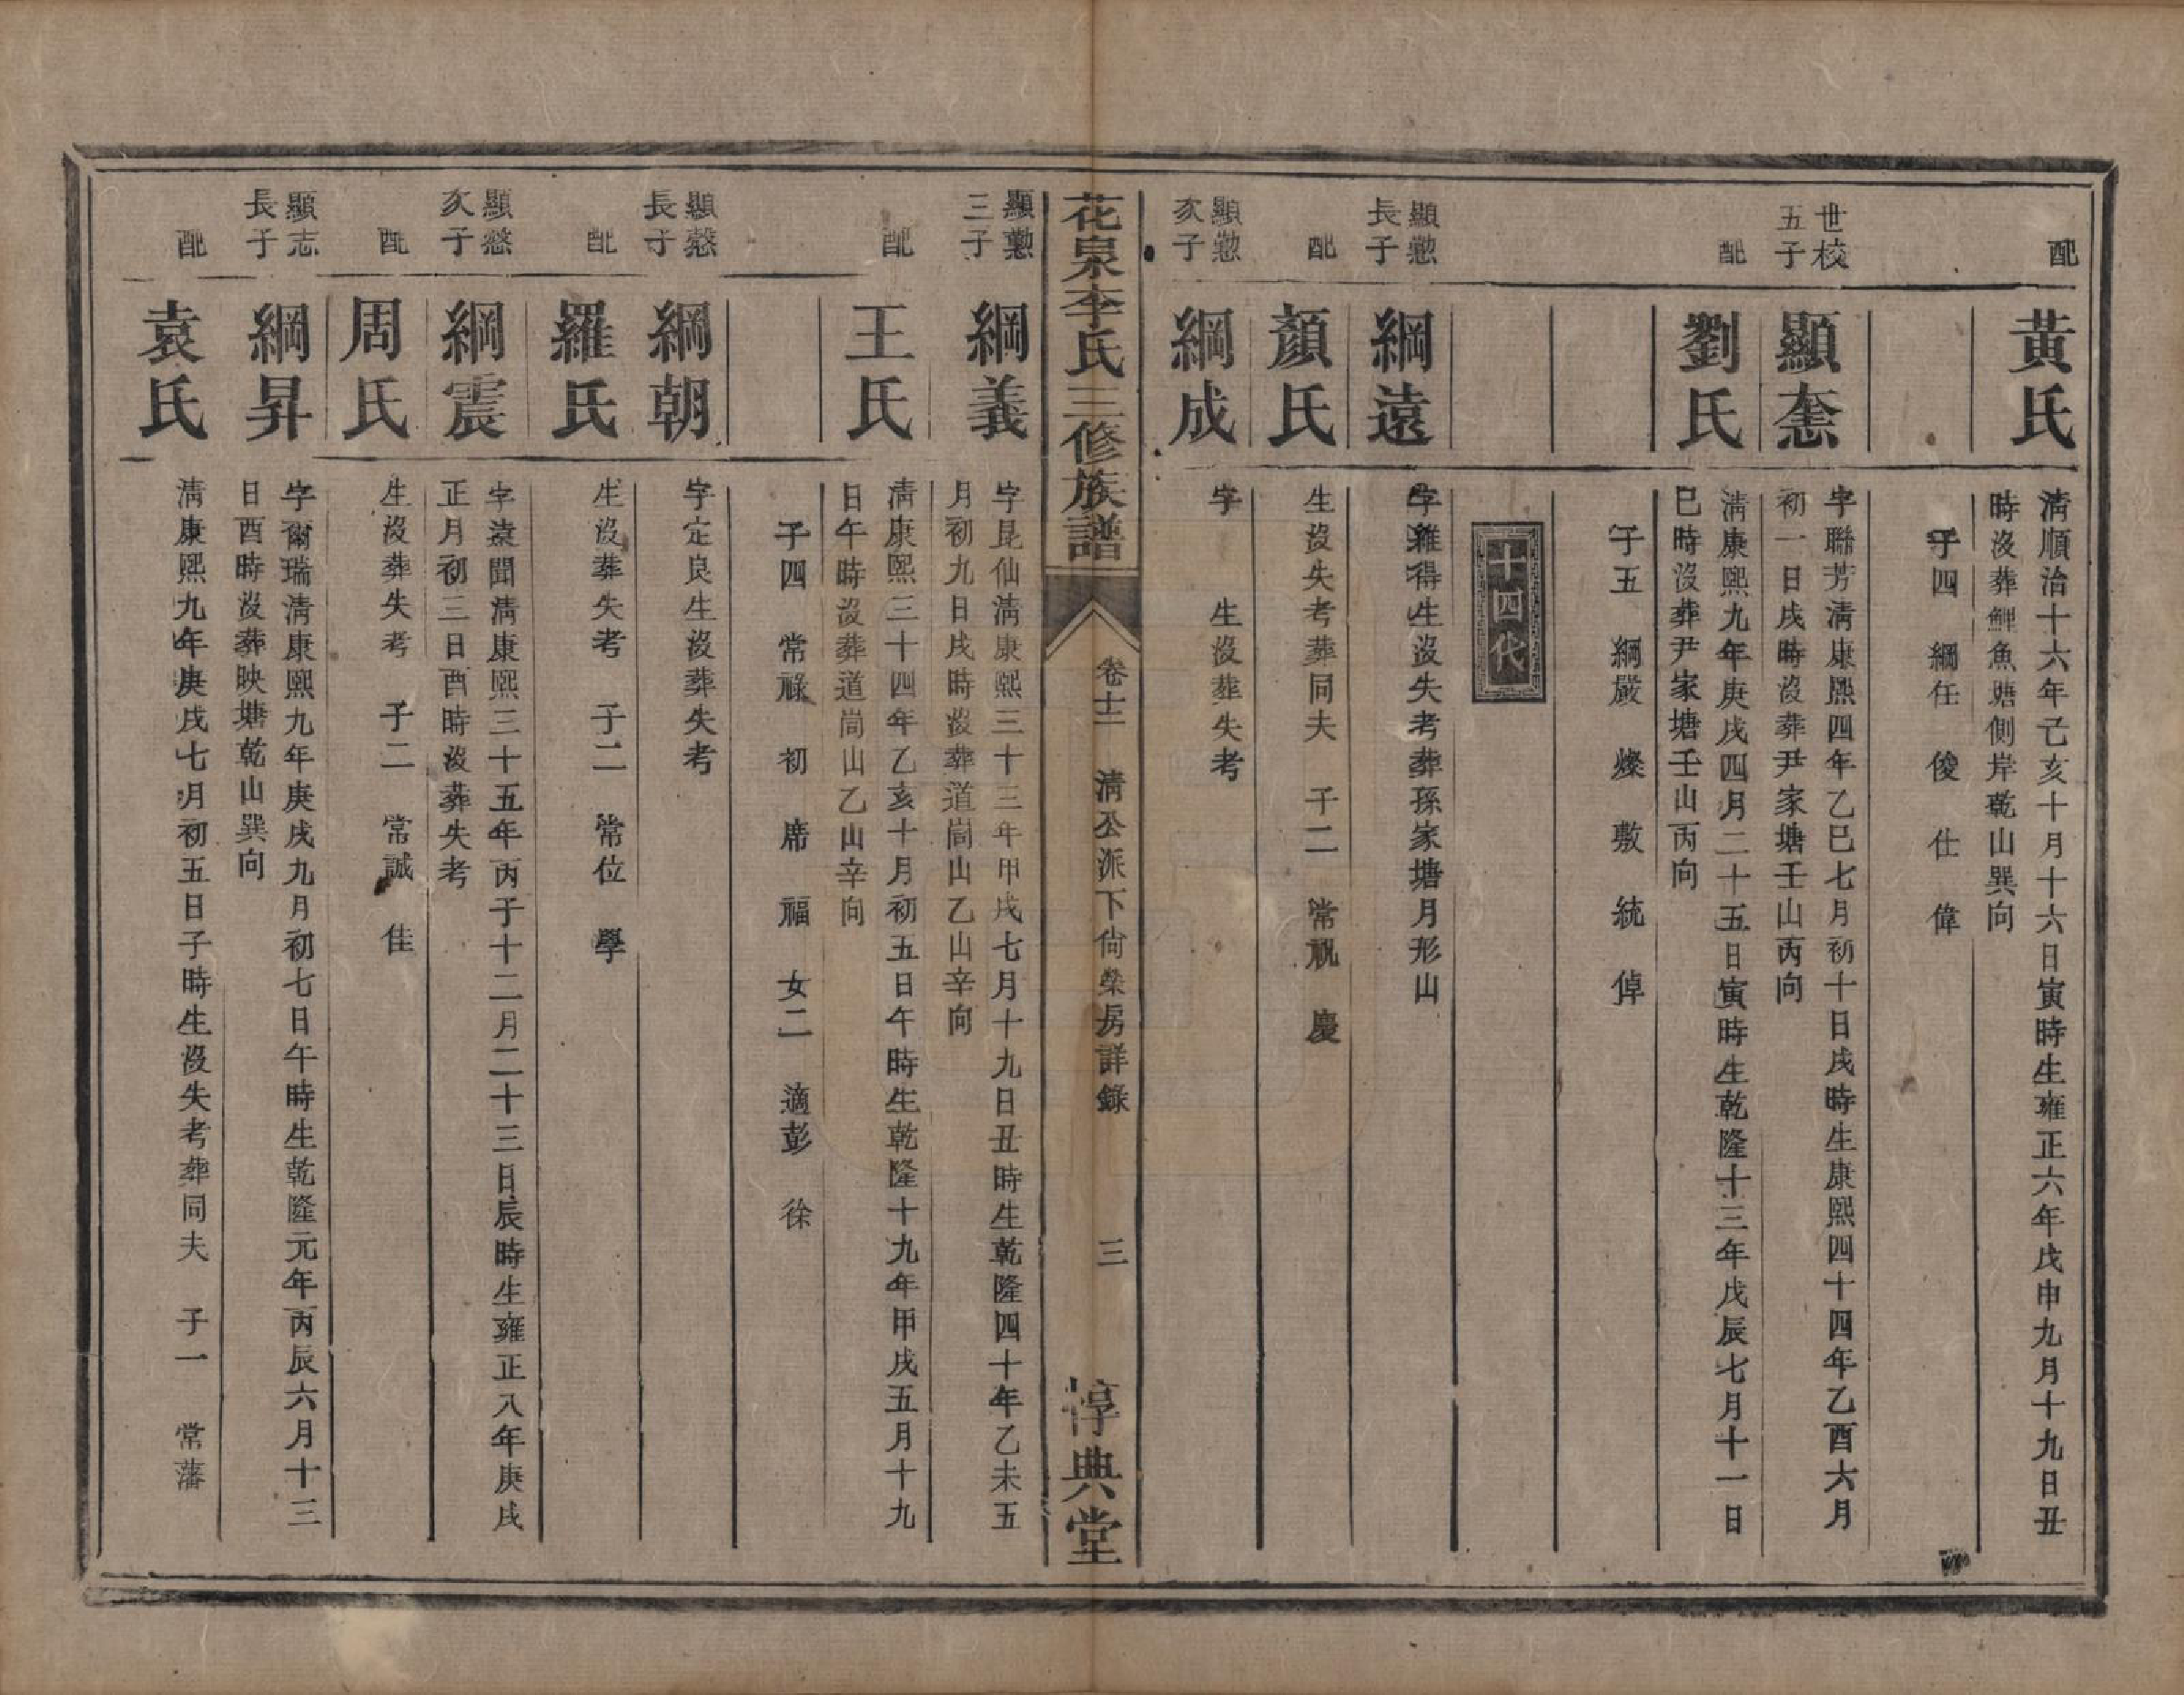 配
黃氏
清順治十六年己亥十月十六日寅時生雍正六年戊申九月十九日丑
時沒葬鯉魚塘側岸乾山巽向
子四　綱任　俊　仕　偉
世校
五子
顯
字聯芳清康熙四年乙巳七月初十日戌時生康熙四十四年乙酉六月
初一日戌時沒葬尹家塘壬山丙向
配
劉氏
清康熙九年庚戌四月二十五日寅時生乾隆十三年戊辰七月十一日
巳時沒葬尹家塘壬山丙向
子五　綱嚴　燦　敷　統　倬
十四代
顯懃
長子
綱遠
字雜得生沒失考葬孫家塘月形山
配
顏氏
生沒失考葬同夫　子二　常祝　慶
顯懃
次子
綱成
字　生沒葬失考
花泉李氏三修族譜
卷十二　清公派下尙榮房詳錄　三
惇典堂
顯懃
三子
綱義
字昆仙淸康熙三十三年甲戌七月十九日丑時生乾隆四十年乙未五
月初九日戌時沒葬道崗山乙山辛向
配
王氏
清康熙三十四年乙亥十月初五日午時生乾隆十九年甲戌五月十九
日午時沒葬道崗山乙山辛向
子四　常祿　初　席　福　女二　適彭　徐
顯慤
長子
綱朝
字定良生沒葬失考
配
羅氏
生沒葬失考　子二　常位　學
顯慤
次子
綱震
字遠聞清康熙三十五年丙子十二月二十三日辰時生雍正八年庚戌
正月初三日酉時沒葬失考
配
周氏
生沒葬失考　子二　常誠　佳
顯志
長子
綱昇
字爾瑞清康熙九年庚戌九月初七日午時生乾隆元年丙辰六月十三
日酉時沒葬映塘乾山巽向
配
袁氏
清康熙九年庚戌七月初五日子時生沒失考葬同夫　子一　常藩